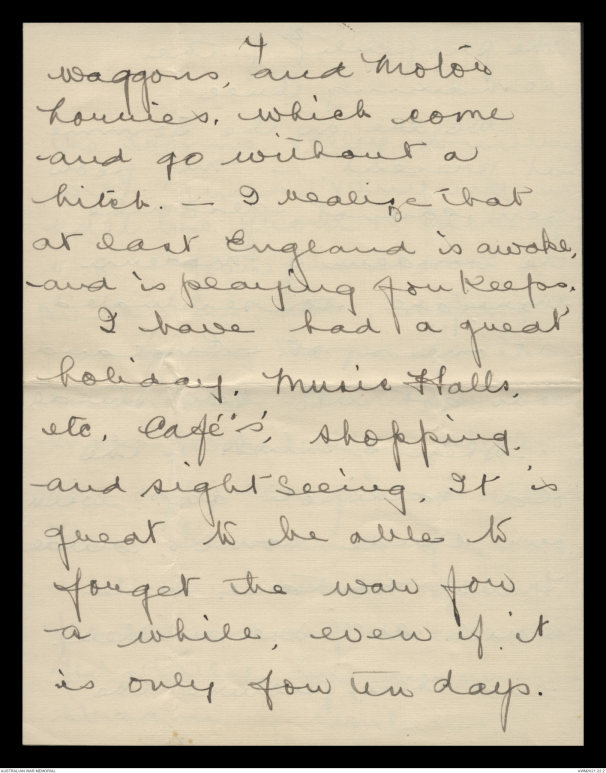 4
waggons, and Motor
lorries, which come
and go without a
hitch. — I realize that
at last England is awake,
and is playing for Keeps.
I have had a great
holiday, Music Halls,
etc, Café's, shopping,
and sight seeing. It is
great to be able to
forget the war for
a while, even if it
is only for ten days.
AUSTRALIAN WAR MEMORIAL